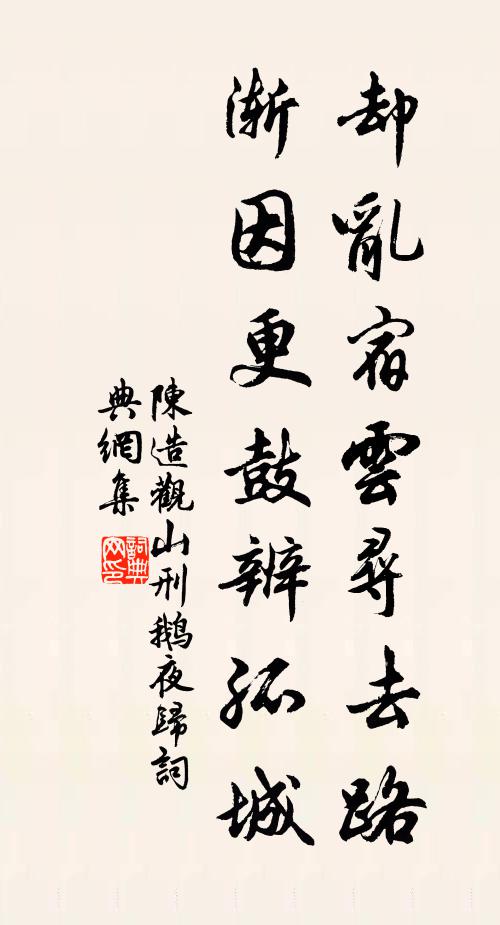 却亂宿雲尋去路
漸因更鼓辨孤城
陳造觀山刑鵝夜歸詞
典網集
詞典
网印